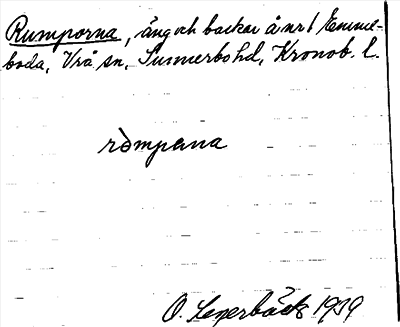 Rumporna, äng och backar å nr 1 Emme-
boda, Vrå sn, Sunnerbo hd, Kronob. l.
ròmpena
O. Lagerbäck 1939